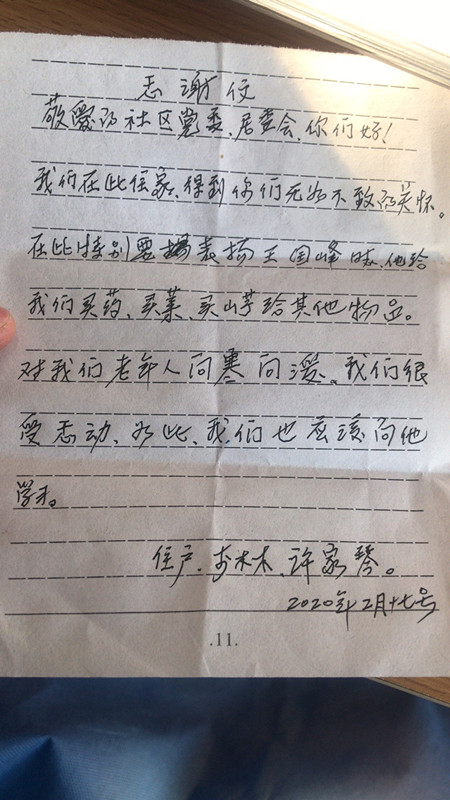 感谢信
敬爱的社区党委、居委会、你们好！
我们在此住家、得到你们无为不致的关怀。
在此特别要表扬王国峰同志、他给
我们买药、买菜、买山芋给其他物品。
对我们老年人问寒问暖、我们很
受感动、为此、我们也应该向他
学习。
住户、木林、许家琴。
2020年2月十七号
.11.